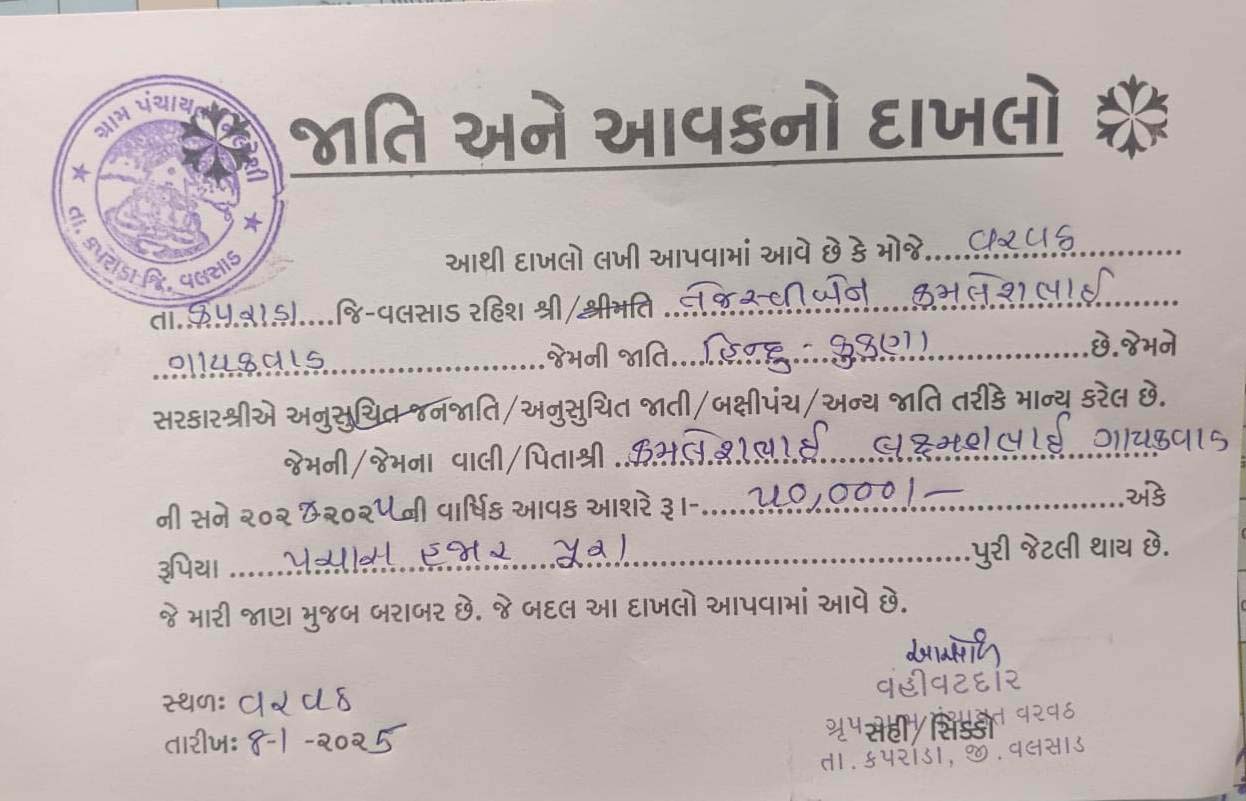 ગ્રામ પંચાયત
તા. કપરાડા જિ. વલસાડ
જાતિ અને આવકનો દાખલો
આથી દાખલો લખી આપવામાં આવે છે કે મોજે....વરવઠ..........
તા.કપરાડા....જિ-વલસાડ રહિશ શ્રી/શ્રીમતિ તેજસ્વીબેન કમલેશભાઈ
ગાયકવાડ..........જેમની જાતિ....હિન્દુ - કુકણા..........છે.જેમને
સરકારશ્રીએ અનુસુચિત જનજાતિ/અનુસુચિત જાતી/બક્ષીપંચ/અન્ય જાતિ તરીકે માન્ય કરેલ છે.
જેમની/જેમના વાલી/પિતાશ્રી કમલેશભાઈ લક્ષ્મણભાઈ ગાયકવાડ
ની સને ૨૦૨૪-૨૦૨૫ની વાર્ષિક આવક આશરે રૂા-....૫૦,૦૦૦/-..........અંકે
રૂપિયા ....પચાસ હજાર પૂરા..........પુરી જેટલી થાય છે.
જે મારી જાણ મુજબ બરાબર છે. જે બદલ આ દાખલો આપવામાં આવે છે.
વહીવટદાર
સ્થળઃ વરવઠ
ગ્રુપ ગ્રામ પંચાયત વરવઠ
સહી/સિક્કો
તારીખઃ 8-1-૨૦૨5
તા. કપરાડા, જી. વલસાડ